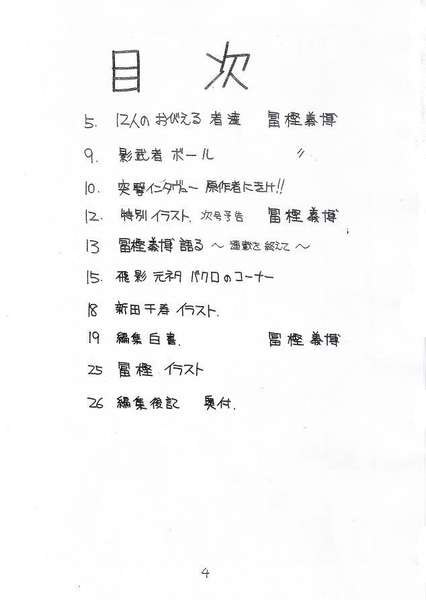 目次
5. 12人のおびえる者達 冨樫義博
9. 影武者ボール 〃
10. 突撃インタヴュー 原作者にきけ!!
12. 特別イラスト. 次号予告 冨樫義博
13 冨樫義博語る 〜運動を終えて〜
15. 飛影元ネタバクロのコーナー
18 新田千春イラスト.
19 編集白書. 冨樫義博
25 冨樫 イラスト
26 編集後記 奥付.
4